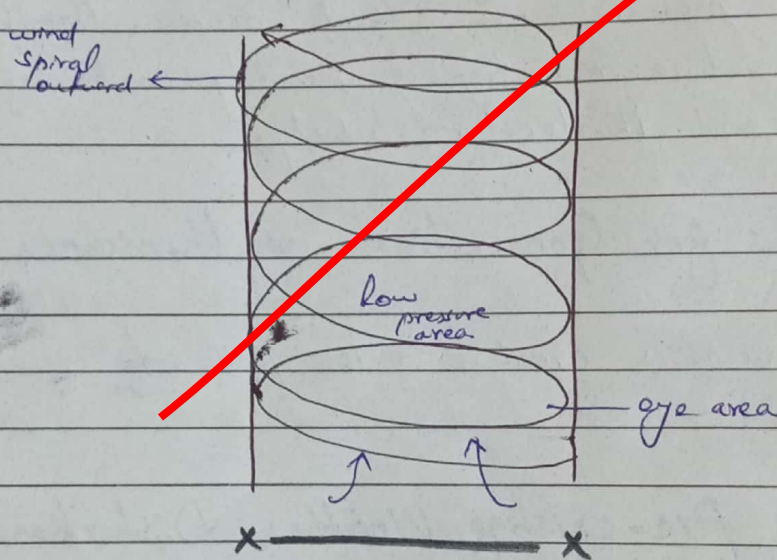 wind
spiral
outward
low
pressure
area
eye area